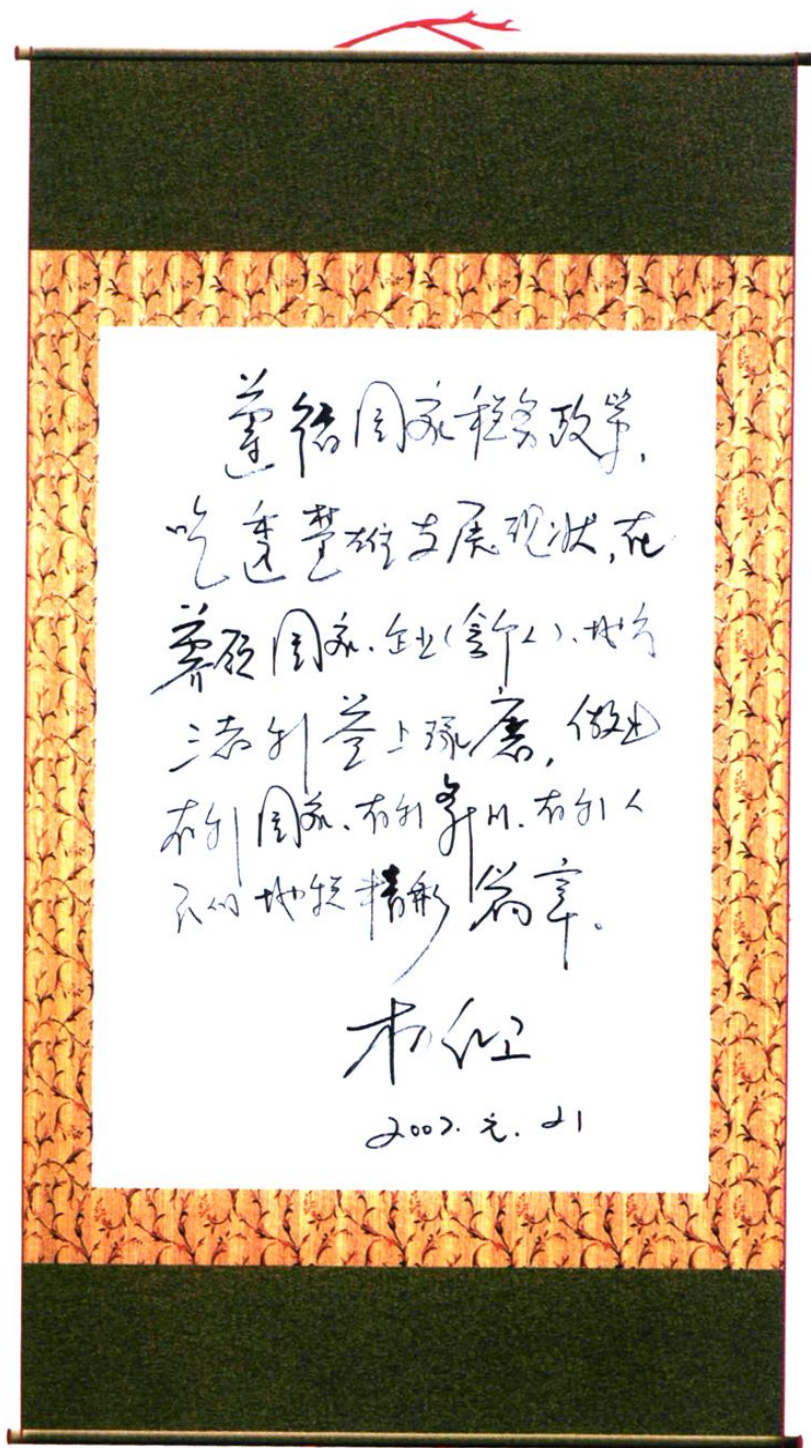 遵循国家税务政策,
吃透楚雄发展现状,在
兼顾国家、企业(含个人)、地方
三者利益上琢磨,做出
有利国家、有利彝州、有利人
民的地税精彩篇章。
2007.元.21